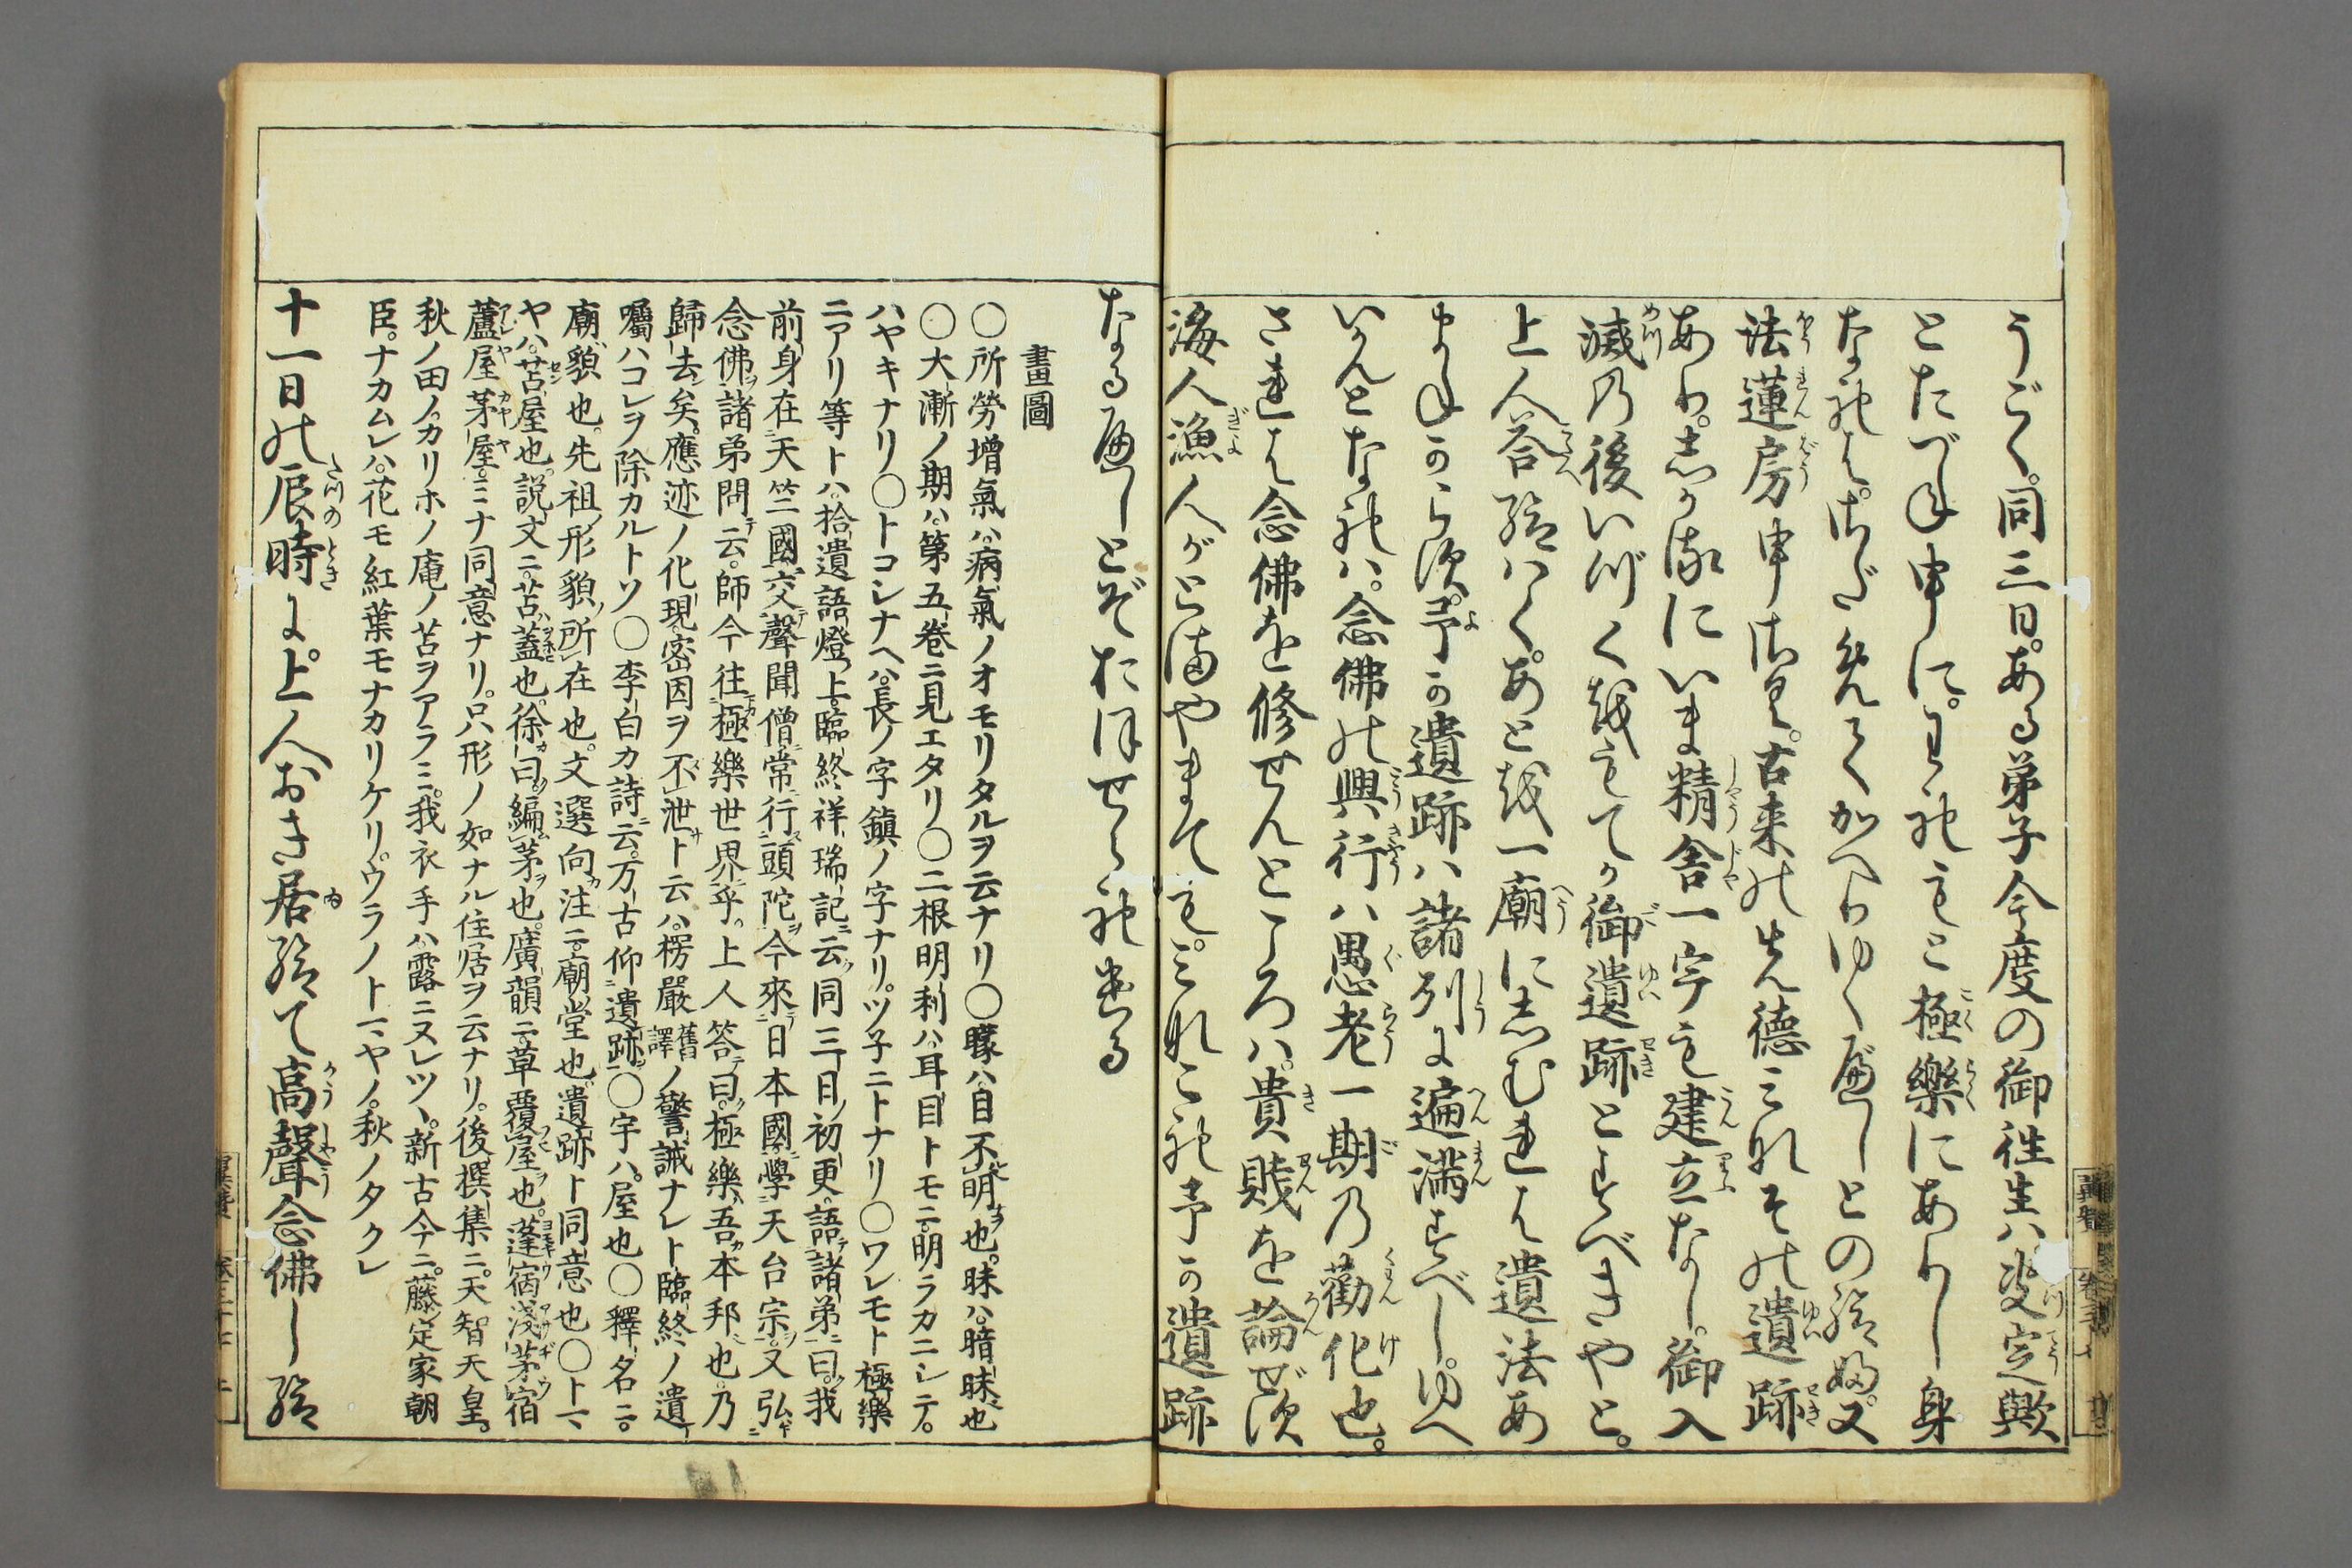 うごく。同三日。ある弟子今度の御往生ハ決定歟
とたづね申に。われもと極樂にありし身
なれは。さだめてかへりゆくべしとの給ふ。又
法蓮房申さく。古来の先徳みなその遺跡
あり。しかるにいま精舎一宇も建立なし。御入
滅の後いづくをもてか御遺跡とすべきやと。
上人答給ハく。あとを一廟にしむれは遺法あ
まねからず。予か遺跡ハ諸列に遍滿すべし。ゆへ
いかんとなれハ。念佛の興行ハ愚老一期の勸化也。
されは念佛を修せんところハ。貴賤を論ぜず
海人漁人がとまやまても。みなこれ予か遺跡
なるべしとぞおほせられける
畫圖
〇所勞增氣ハ病氣ノオモリタルヲ云ナリ〇矇ハ目不明也。昧ハ暗昧也
〇大漸ノ期ハ第五卷ニ見エタリ〇二根明利ハ耳目トモニ明ラカニシテ。
ハヤキナリ〇トコシナヘハ長ノ字鎮ノ字ナリ。ツ子ニトナリ〇ワレモト極樂
ニアリ等トハ拾遺語燈上臨終祥瑞記云同三日初更。語諸弟曰。我
前身在天竺國交聲聞僧常行頭陀今來日本國學天台宗。又弘
念佛諸弟問云。師今往極樂世界乎。上人答曰。極樂吾本邦也。乃
歸去矣。應迹ノ化現密因ヲ不泄ト云ハ楞嚴舊譯ノ警誡ナレト臨終ノ遺
囑ハコレヲ除カルトソ〇李白カ詩云。万古仰遺跡〇宇ハ屋也〇釋名ニ。
廟貌也。先祖形貌所在也。文選向注ニ廟堂也。遺跡ト同意也〇トマ
ヤハ苫屋也。説文ニ。苫蓋也。徐曰。編茅也。廣韻ニ草覆屋也。蓬宿淺茅宿
蘆屋茅屋ミナ同意ナリ。只形ノ如ナル住居ヲ云ナリ。後撰集ニ。天智天皇。
秋ノ田ノカリホノ庵ノ苫ヲアラミ。我衣手ハ露ニヌレツヽ。新古今ニ。藤定家朝
臣。ナカムレハ花モ紅葉モナカリケリ。ウラノトマヤノ。秋ノタクレ
十一日の辰時に上人おき居給て高聲念佛し給